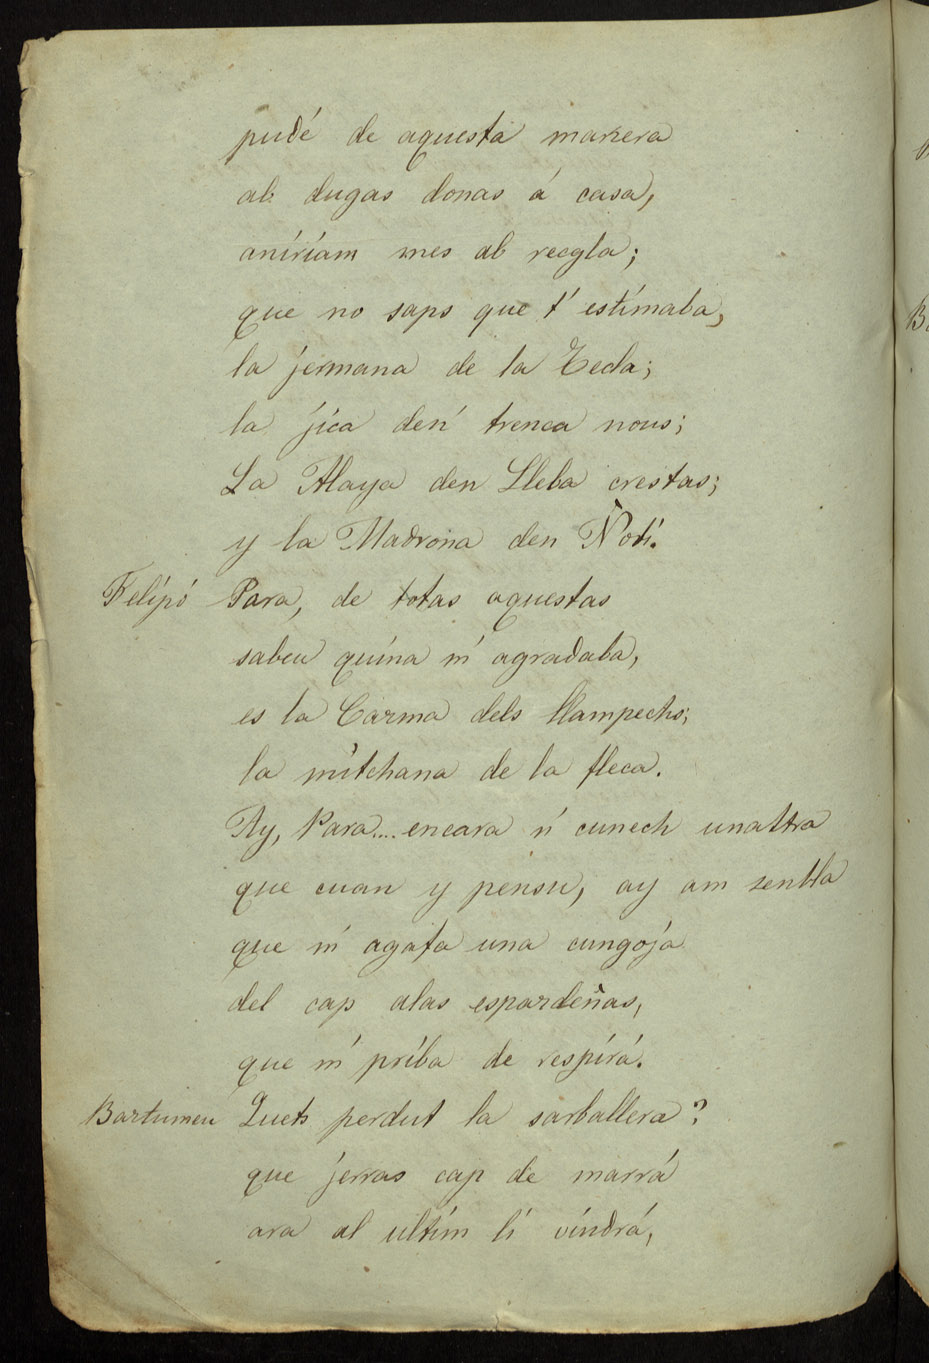 pudé de aquesta manera
ab dugas donas á casa,
aniríam mes ab reegla;
que no saps que t' estimaba,
la jermana de la Tecla;
la jica den trenca nous;
La Alaya den Lleba crestas;
y la Madrona den Noti.
Felipó Para, de totas aquestas
sabeu quina m' agradaba,
es la Carma dels llampechs;
la mitchana de la fleca.
Ay, Para.... encara n' cunech unaltra
que cuan y pensu, ay am sembla
que m' agafa una cungoja
del cap alas espardeñas,
que m' priba de respirá.
Bartumeu Quets perdut la sarballera?
que jerras cap de marrá
ara al ultim li vindrá,